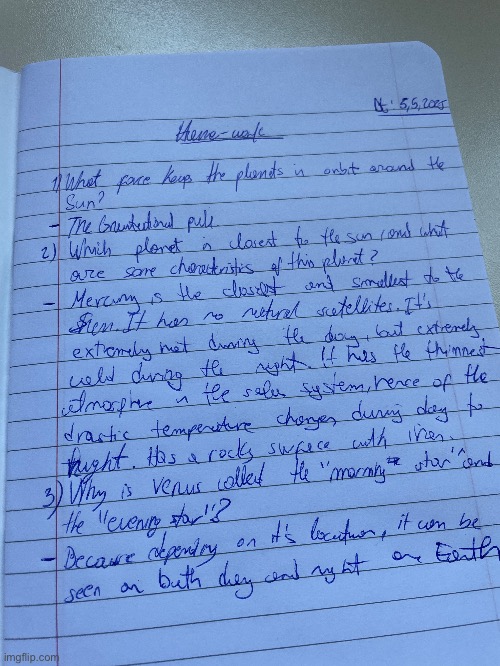 Dt: 5,5,2025
Home-work
1) What force keeps the planets in orbit around the
Sun?
- The Gravitational pull
2) Which planet is closest to the sun, and what
are some characteristics of this planet?
- Mercury is the closest and smallest to the
Sun. It has no natural satellites. It's
extremely hot during the day, but extremely
cold during the night. It has the thinnest
atmosphere in the solar system, hence of the
drastic temperature changes during day to
night. Has a rocky surface with
3) Why is Venus called the "morning star" and
the "evening star"?
- Because depending on it's location, it can be
seen on both day and night on Earth
imgflip.com